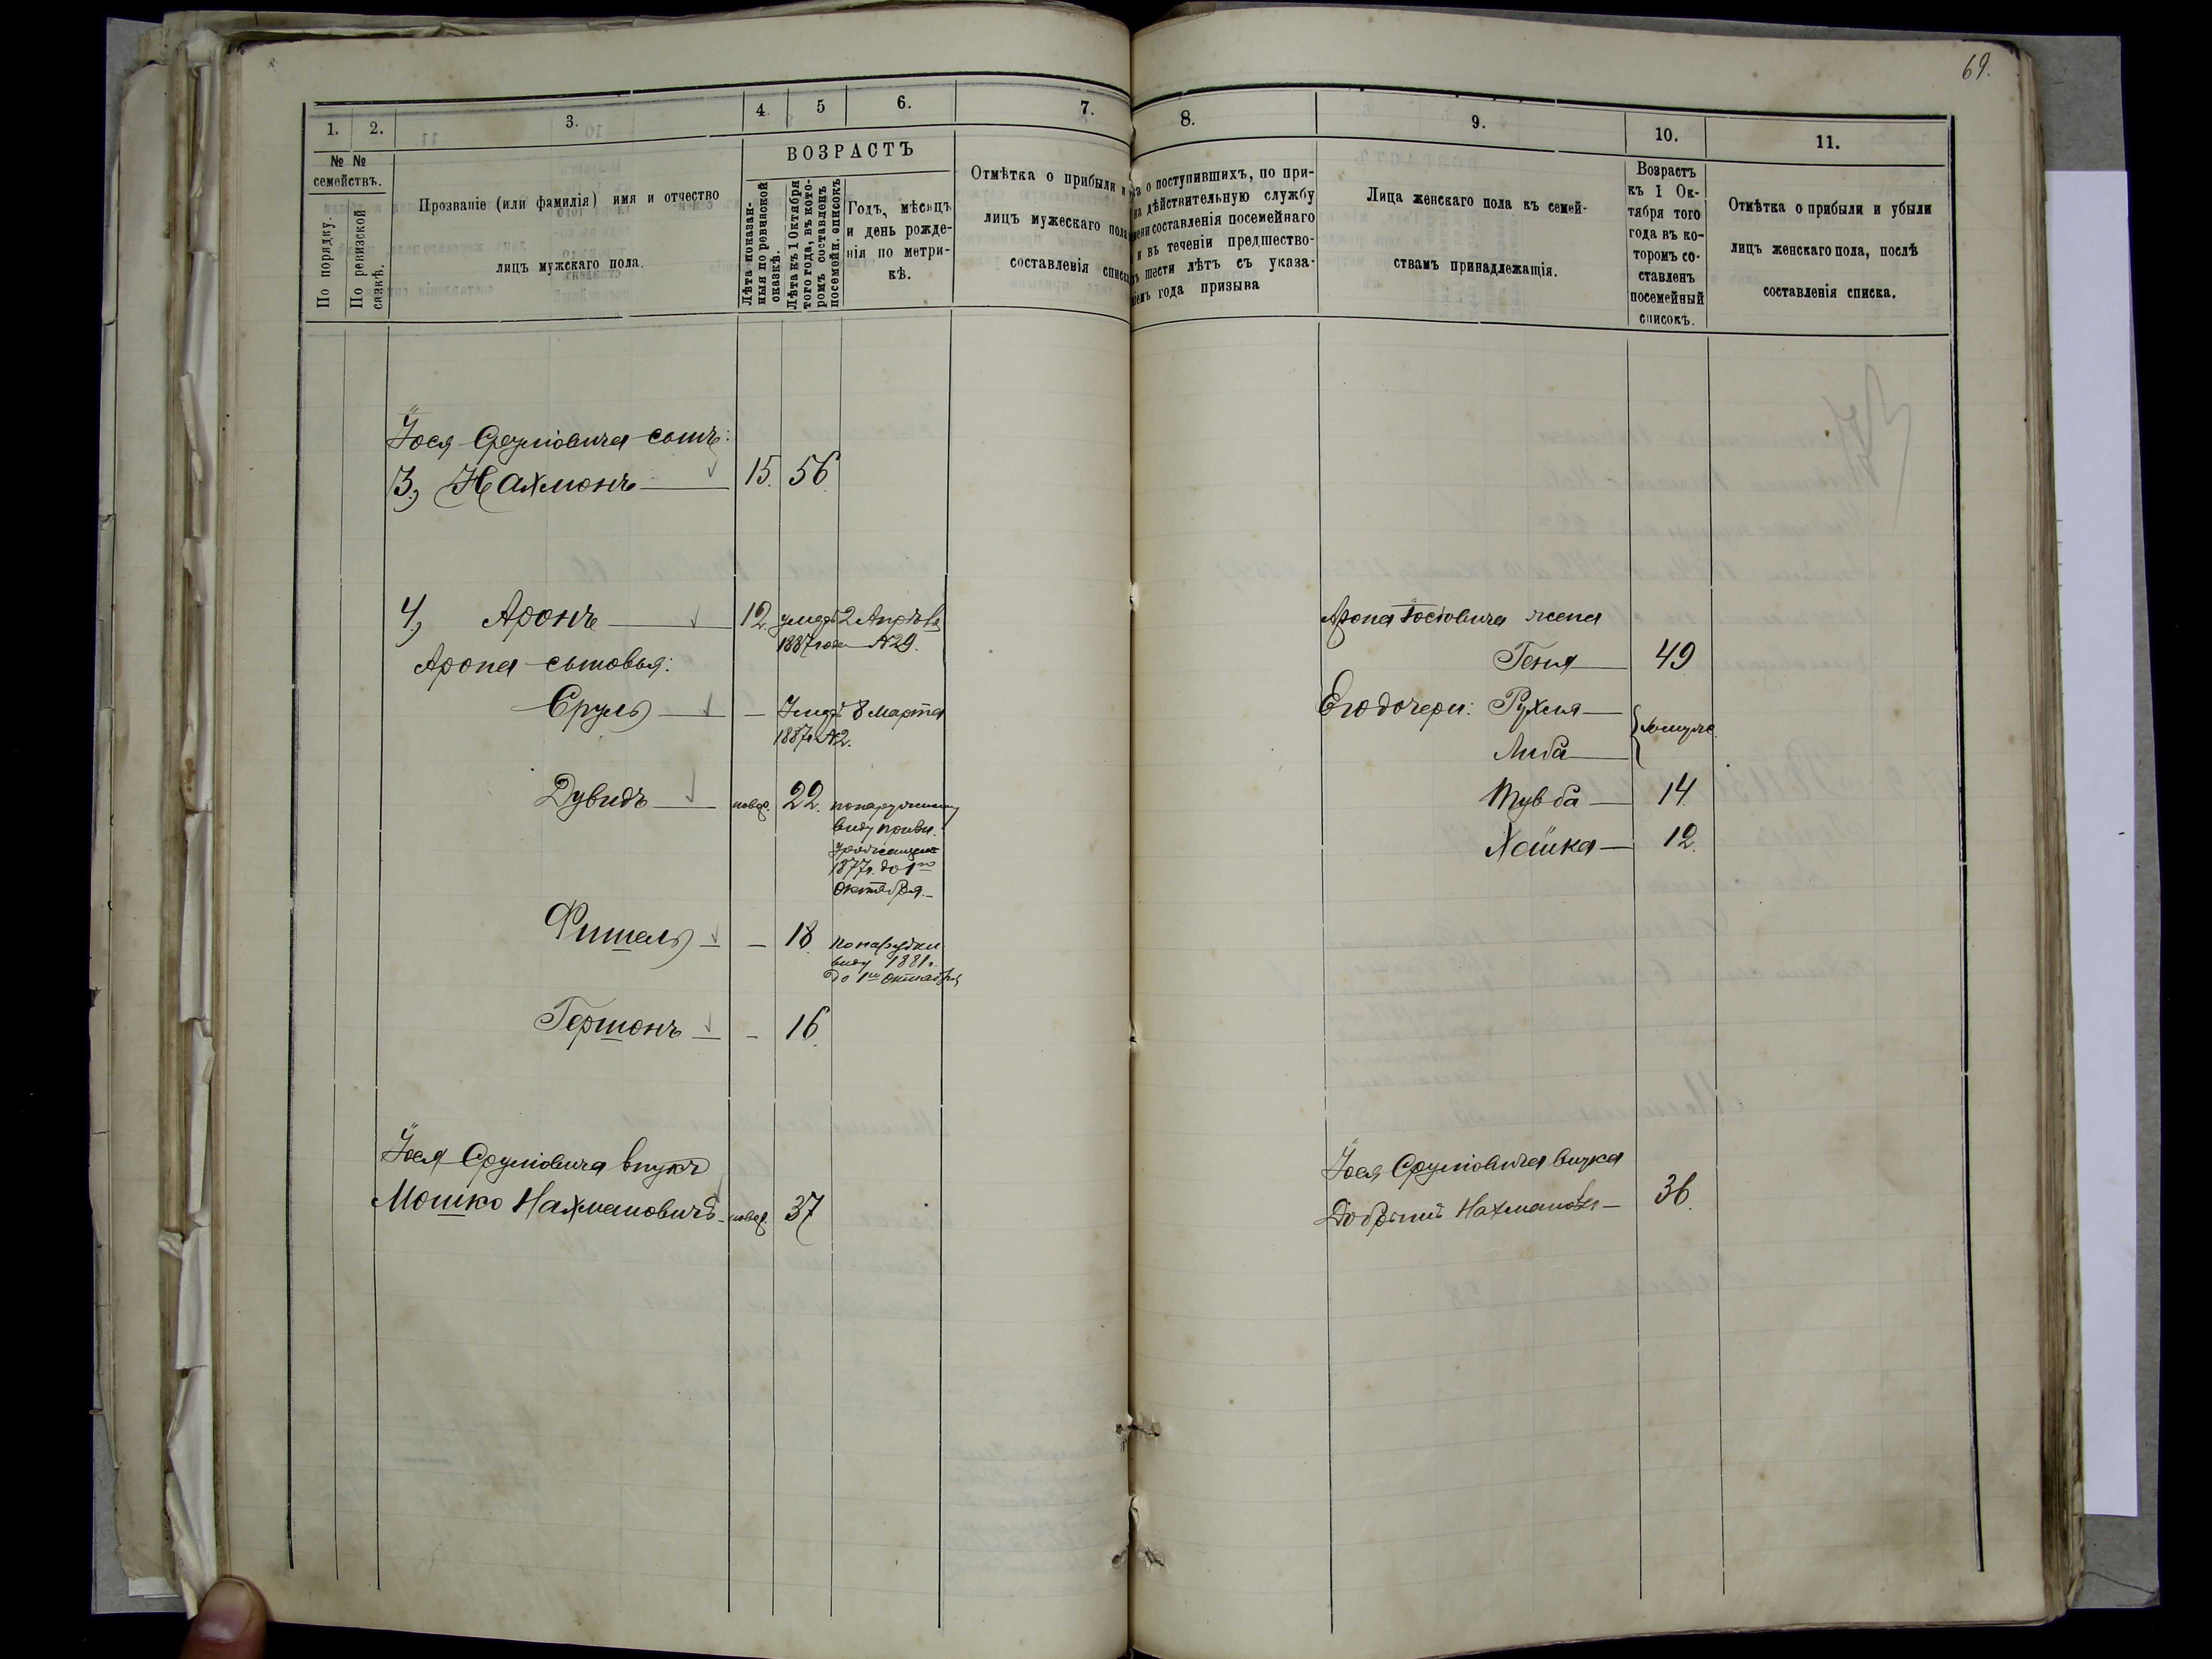 69.
1.
2.
3.
4.
5
6.
7.
8.
9.
10.
11.
№ № семействъ.
По порядку.
По ревизской сказкѣ.
Прозваніе (или фамилія) имя и отчество
лицъ мужскаго пола.
ВОЗРАСТЪ
Лѣта показан-
ныя по ревизской
сказкѣ.
Лѣта къ 1 Октября
того года, въ кото-
ромъ составленъ
посемейн. списокъ
Годъ, мѣсяцъ
и день рожде-
нія по метри-
кѣ.
Отмѣтка о прибыли и
лицъ мужескаго пола
составленія списка
о поступившихъ, по при-
на дѣйствительную службу
составленія посемейнаго
и въ теченіи предшество-
шести лѣтъ съ указа-
года призыва
Лица женскаго пола къ семей-
ствамъ принадлежащія.
Возрастъ
къ 1 Ок-
тября того
года въ ко-
торомъ со-
ставленъ
посемейный
списокъ.
Отмѣтка о прибыли и убыли
лицъ женскаго пола, послѣ
составленія списка.
Іося Сруліовича сынъ:
3, Нахмонъ 15. 56.
4, Аронъ 12. умеръ 2 Апрѣля
1887 года №29.
Арона сыновья:
Сруль — Умеръ 8 Марта
1887г. №2.
Дувидъ новор. 22. по наружному
виду
1877г. до 1го
Октября.
Фишель — 18
виду 1881г.
до 1го Октября
Гершонъ — 16.
Іося Сруліовича внукъ
Мошко Нахмановичъ новор. 37
Арона Іосіовича жена
Геня 49
Его дочери: Рухля
Либа
замуже.
Тувба 14.
Хайка 12.
Іося Сруліовича внука
Нахманова 36.